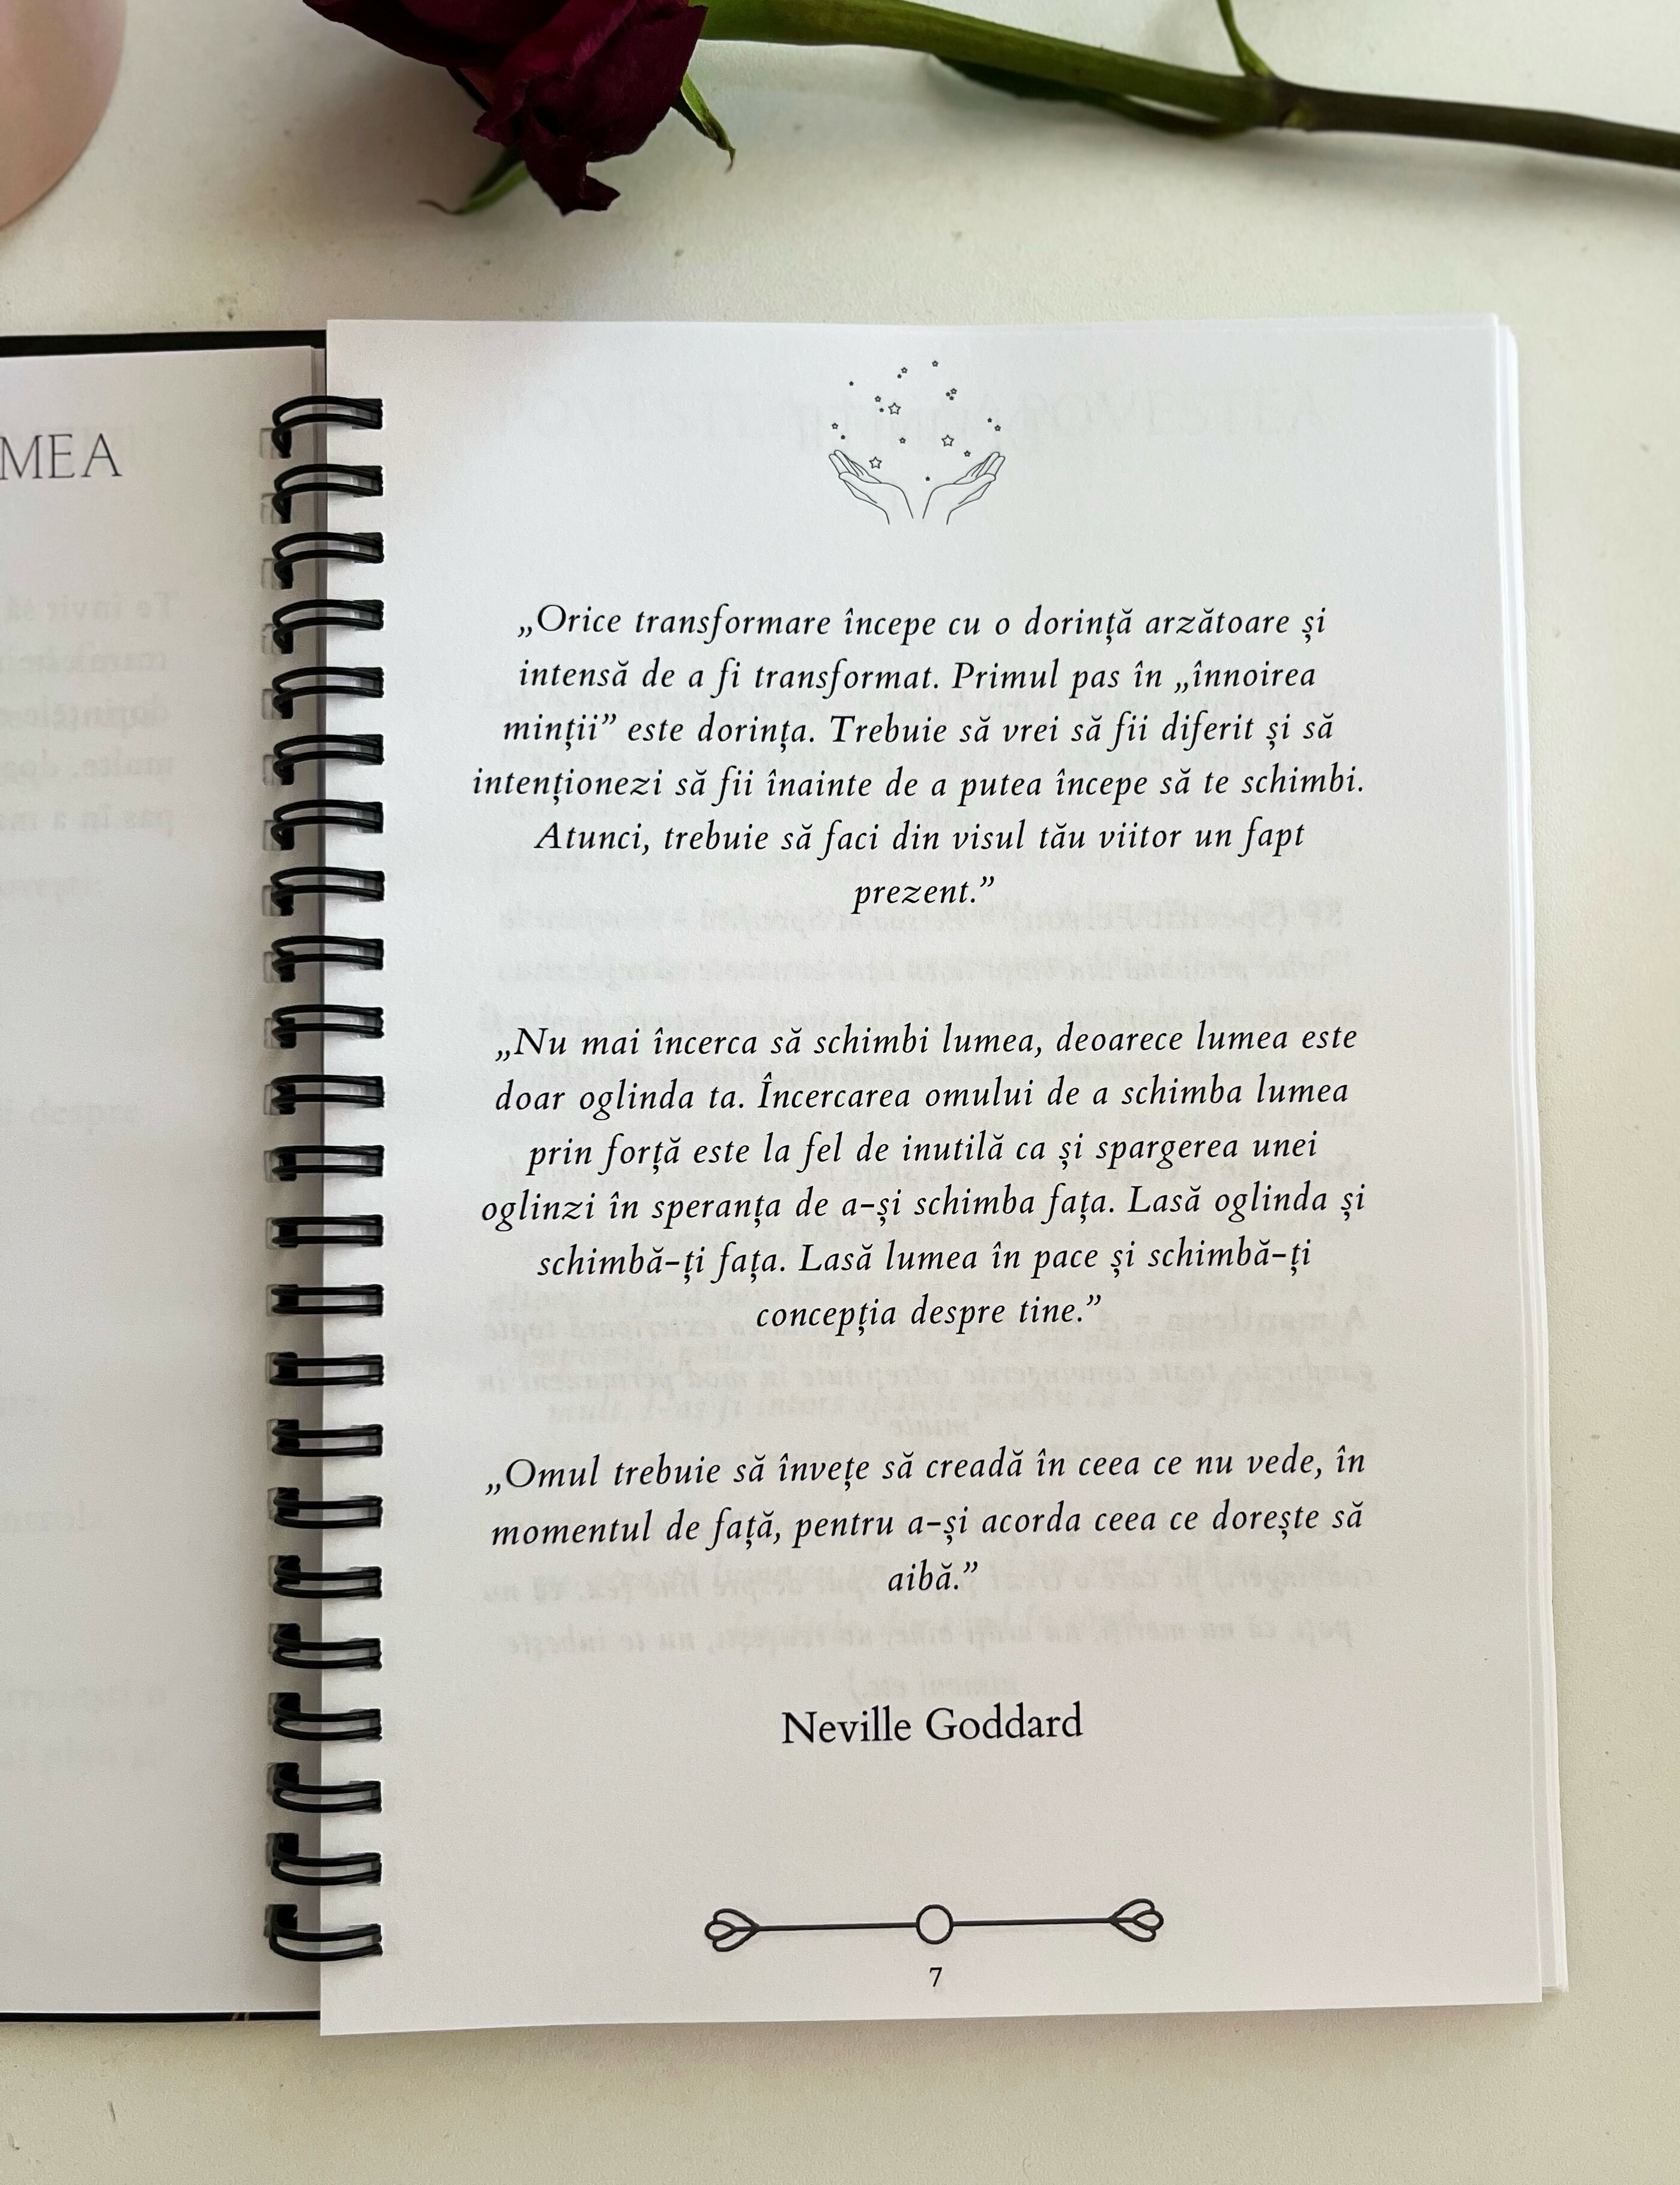 MEA
„Orice transformare începe cu o dorință arzătoare și
intensă de a fi transformat. Primul pas în „înnoirea
minții” este dorința. Trebuie să vrei să fii diferit și să
intenționezi să fii înainte de a putea începe să te schimbi.
Atunci, trebuie să faci din visul tău viitor un fapt
prezent.”
„Nu mai încerca să schimbi lumea, deoarece lumea este
doar oglinda ta. Încercarea omului de a schimba lumea
prin forță este la fel de inutilă ca și spargerea unei
oglinzi în speranța de a-și schimba fața. Lasă oglinda și
schimbă-ți fața. Lasă lumea în pace și schimbă-ți
concepția despre tine.”
„Omul trebuie să învețe să creadă în ceea ce nu vede, în
momentul de față, pentru a-și acorda ceea ce dorește să
aibă.”
Neville Goddard
7